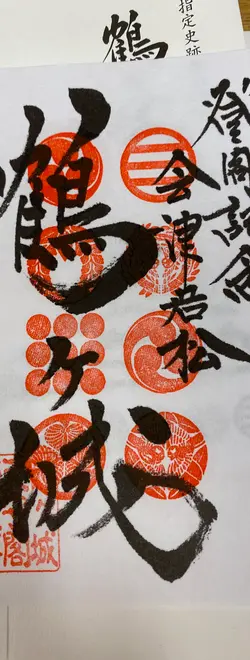 指定史跡
鶴
登閣記念
会津若松
鶴ヶ城
閣城